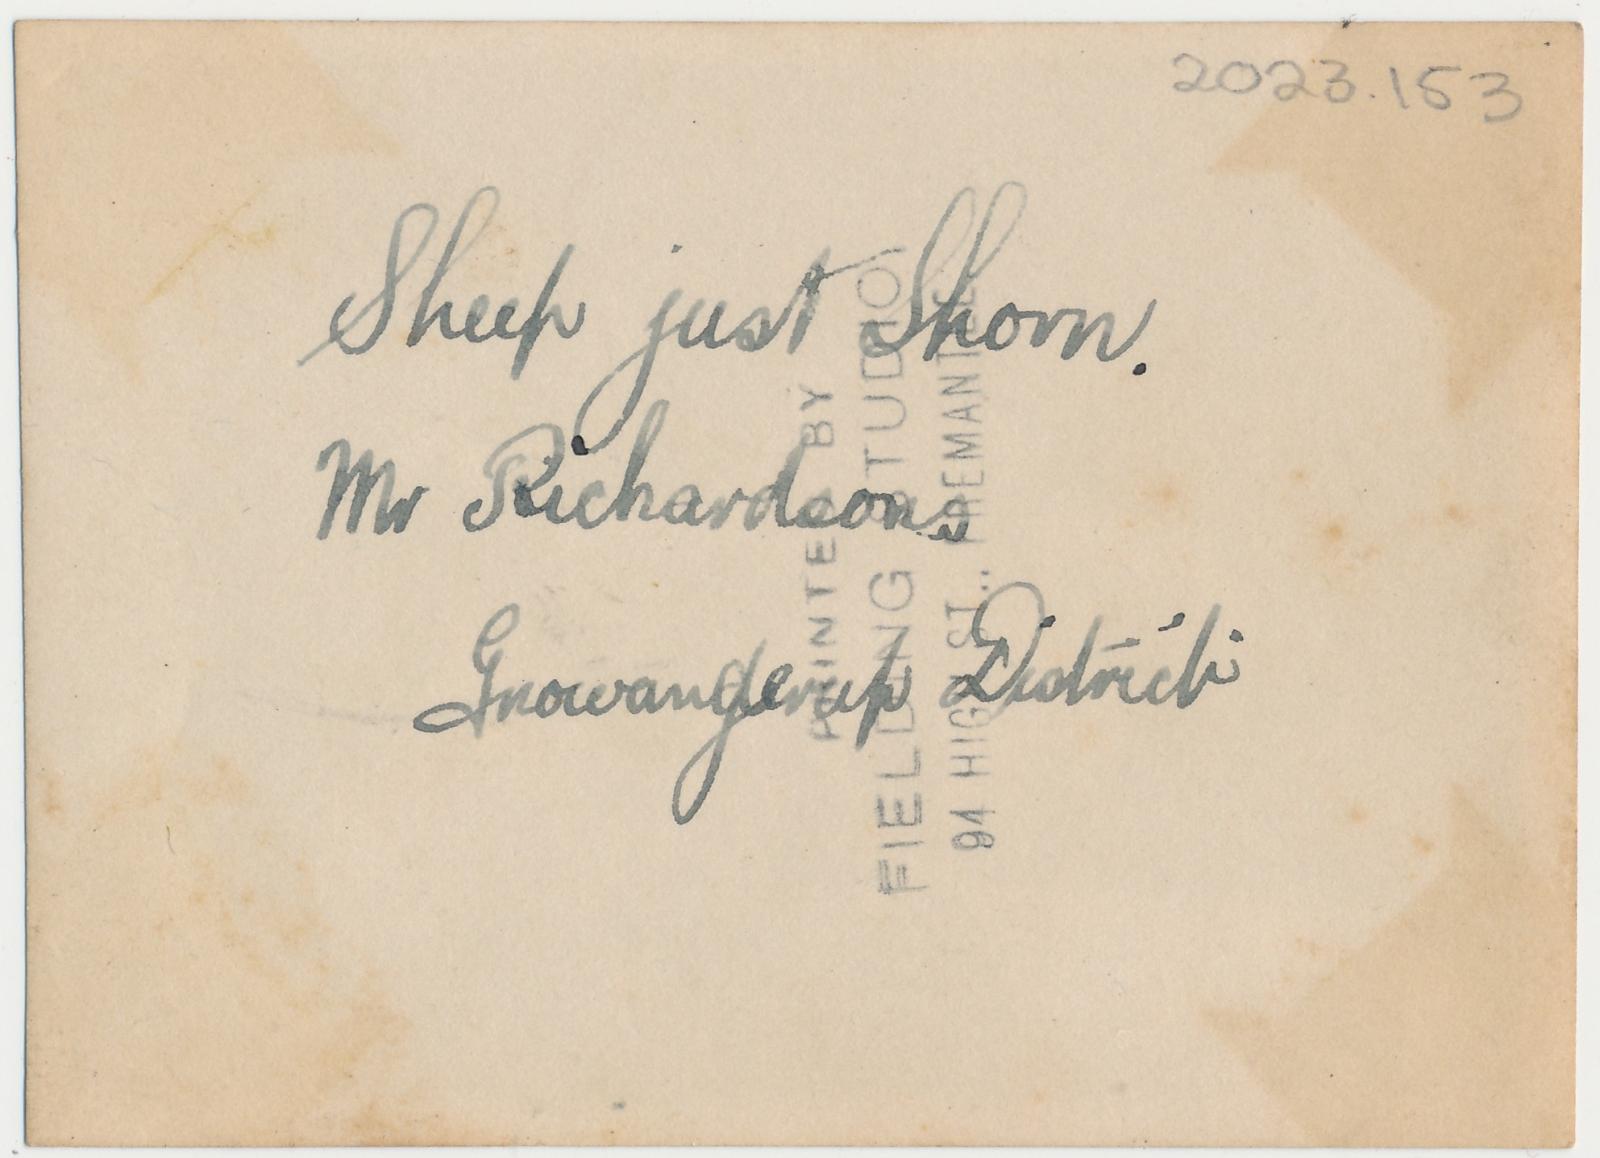 2023.153
Sheep just Shorn.
Mr Richardsons
Gnowangerup District
PRINTED BY
FIELDING STUDIO,
94 HIGH ST., FREMANTLE